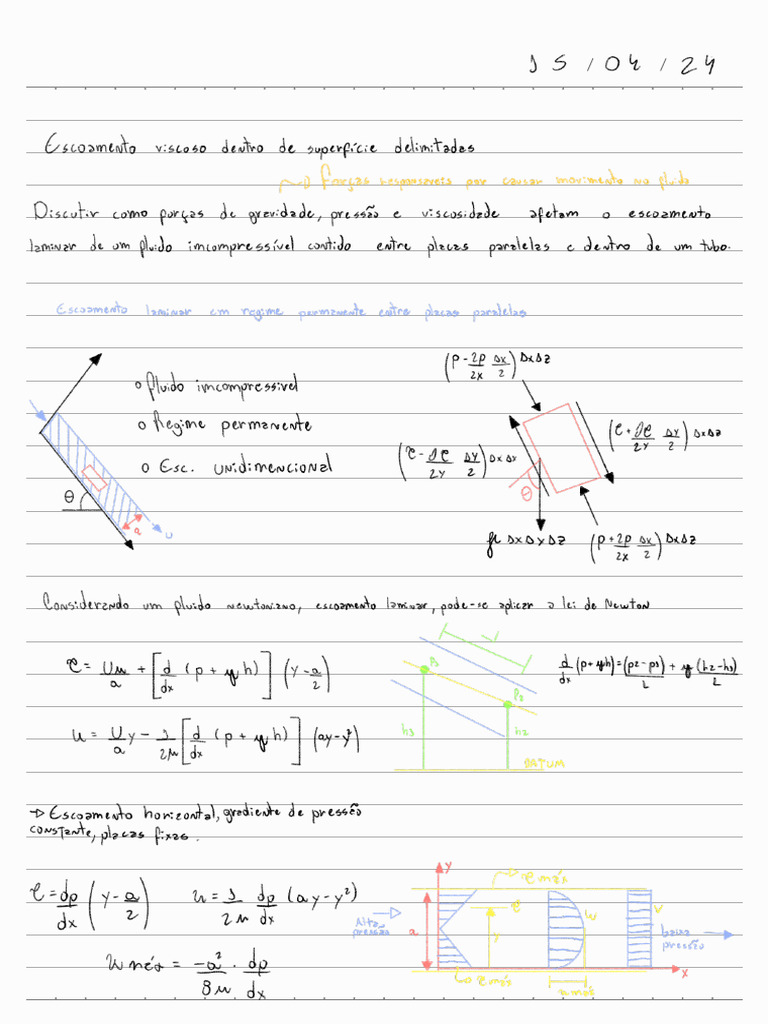 15/04/24
Escoamento viscoso dentro de superfície delimitadas
~> Forças responsáveis por causar movimento no fluido
Discutir como forças de gravidade, pressão e viscosidade afetam o escoamento
laminar de um fluido imcompressível contido entre placas paralelas e dentro de um tubo.
Escoamento laminar em regime permanente entre placas paralelas
o fluido imcompressivel
o Regime permanente
o Esc. unidimencional
θ
a
u
(p - ∂p/∂x Δx/2) ΔxΔz
(τ + ∂τ/∂y Δy/2) ΔxΔz
(τ - ∂τ/∂y Δy/2) ΔxΔx
θ
γ ΔxΔyΔz
(p + ∂p/∂x Δx/2) ΔxΔz
Considerando um fluido newtoniano, escoamento laminar, pode-se aplicar a lei de Newton
τ = Uμ/a + [d/dx (p + γh)] (y - a/2)
u = U/a y - 1/2μ [d/dx (p + γh)] (ay - y²)
L
P1
P2
h1
h2
DATUM
d/dx (p + γh) = (p2 - p1)/L + γ (h2 - h1)/L
-> Escoamento horizontal, gradiente de pressão
constante, placas fixas.
τ = dp/dx (y - a/2)
u = 1/2μ dp/dx (ay - y²)
umáx = -a²/8μ · dp/dx
y
τ máx
τ
u
V
Alta
pressão
a
y
baixa
pressão
x
τ máx
u máx